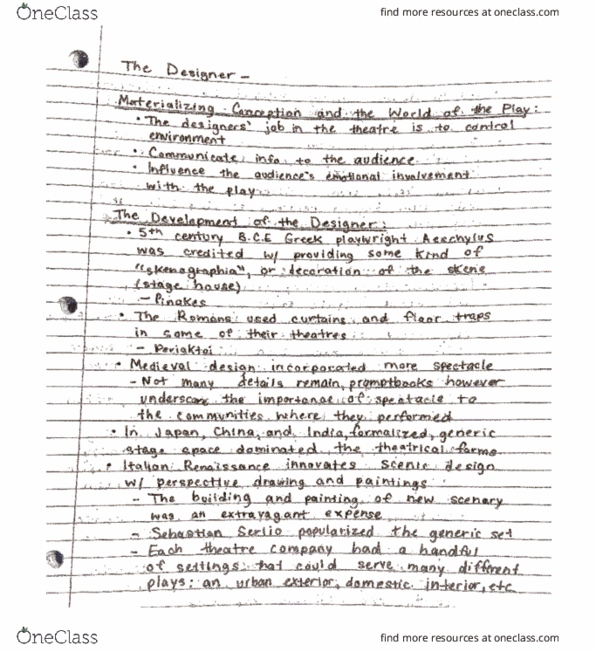 OneClass
find more resources at oneclass.com
The Designer -
Materializing Conception and the World of the Play:
• The designers' job in the theatre is to control
environment
• Communicate info to the audience
• Influence the audience's emotional involvement
with the play
The Development of the Designer:
• 5th century B.C.E Greek playwright Aeschylus
was credited w/ providing some kind of
"skenographia", or decoration of the skene
(stage house)
- Pinakes
• The Romans used curtains and floor traps
in some of their theatres
- Periaktoi
• Medieval design incorporated more spectacle
- Not many details remain, promptbooks however
underscore the importance of spectacle to
the communities where they performed
• In Japan, China, and India, formalized, generic
stage space dominated the theatrical forms
• Italian Renaissance innovates scenic design
w/ perspective drawing and paintings
- The building and painting of new scenery
was an extravagant expense
- Sebastian Serlio popularized the generic set
- Each theatre company had a handful
of settings that could serve many different
plays: an urban exterior, domestic interior, etc
OneClass
find more resources at oneclass.com